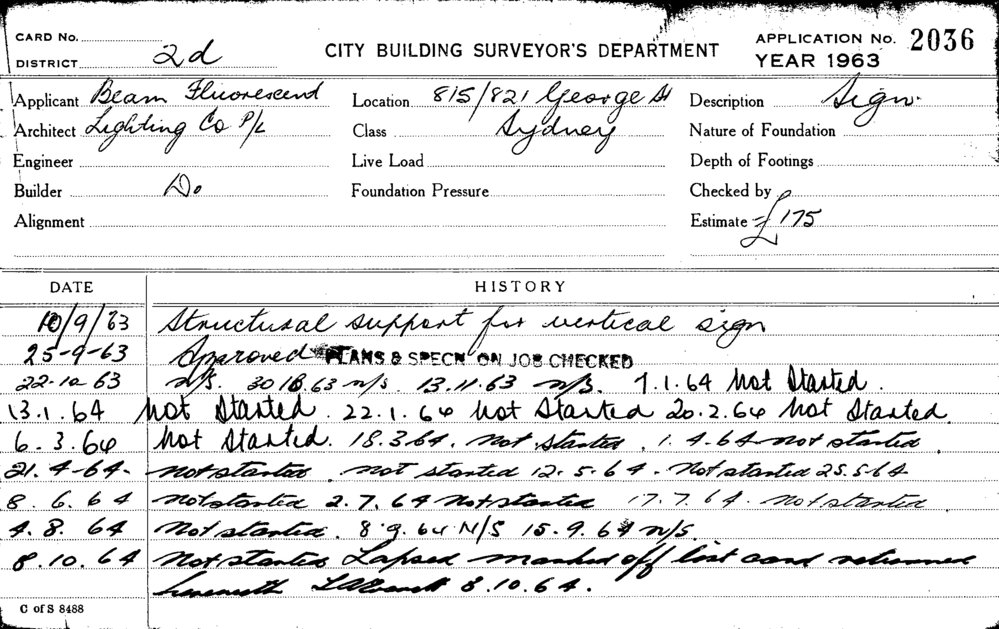 CARD No.
DISTRICT 2d
CITY BUILDING SURVEYOR'S DEPARTMENT
APPLICATION No. 2036
YEAR 1963
Applicant Beam Fluorescend Location 815/821 George St Description Sign.
Architect Lighting Co P/L Class Sydney Nature of Foundation
Engineer Live Load Depth of Footings
Builder Do Foundation Pressure Checked by
Alignment Estimate £175
DATE HISTORY
10/9/63 Structural support for vertical sign
25-9-63 Approved PLANS & SPECN ON JOB CHECKED
22.10 63 n/s. 30 10.63 n/s. 13.11.63 n/s. 7.1.64 Not Started.
13.1.64 Not Started. 22.1.64 Not Started 20.2.64 Not Started
6.3.64 Not Started. 18.3.64. Not started. 1.4.64 Not started
21.4-64- Not started. not started 12.5.64. Not started 25.5.64
8.6.64 Not started 2.7.64 Not started 17.7.64. Not started
4.8.64 Not started. 8.9.64 N/S 15.9.64 n/s.
8.10.64 Not started Lapsed marked off list card returned
herewith 8.10.64.
C of S 8488